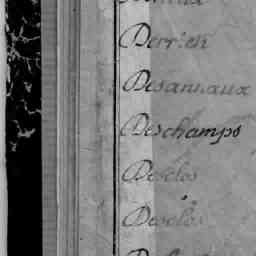 Derrien
Desanuaux
Deschamps
Desclos
Desclos